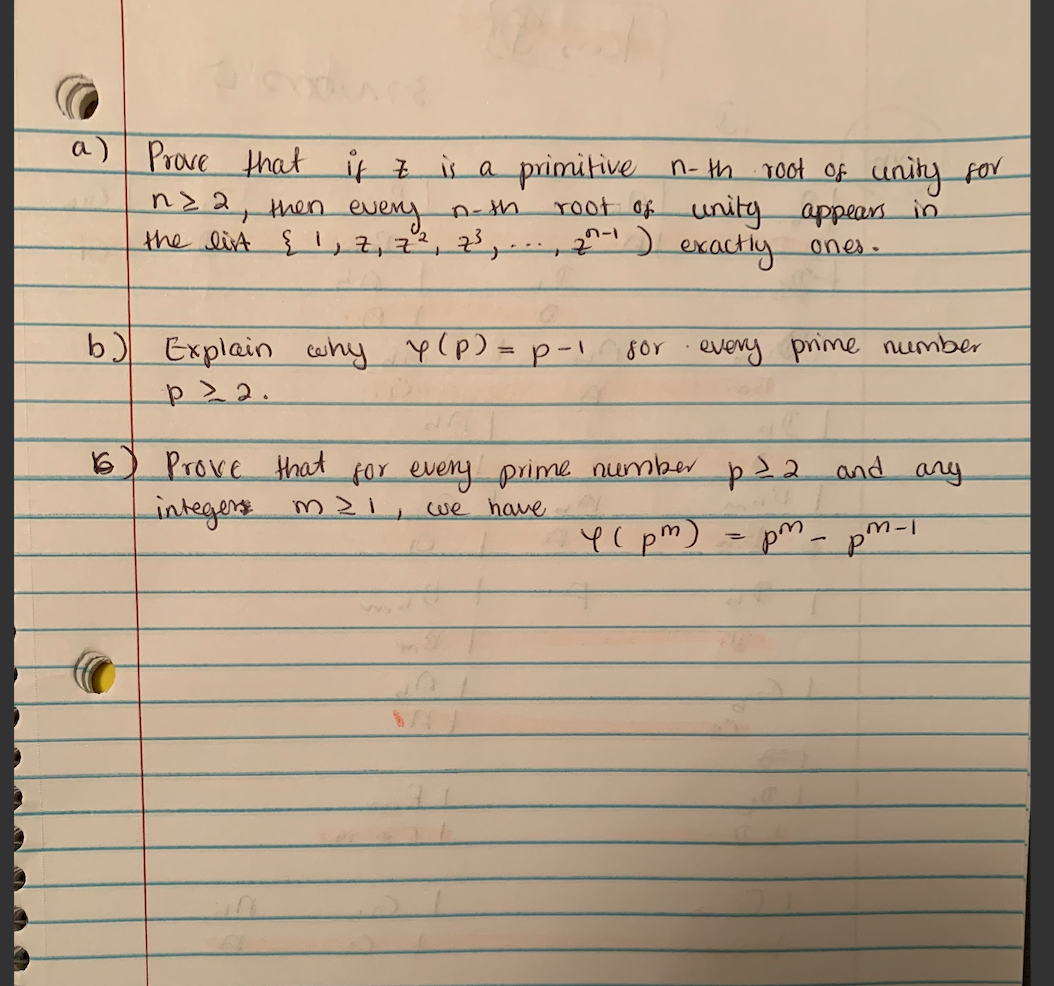 a) Prove that if z is a primitive n-th root of unity for
n ≥ 2, then every n-th root of unity appears in
the list { 1, z, z², z³, ..., zⁿ⁻¹ ) exactly ones.
b) Explain why φ(p) = p-1 for every prime number
p ≥ 2.
c) Prove that for every prime number p ≥ 2 and any
integer m ≥ 1, we have
φ(pᵐ) = pᵐ - pᵐ⁻¹